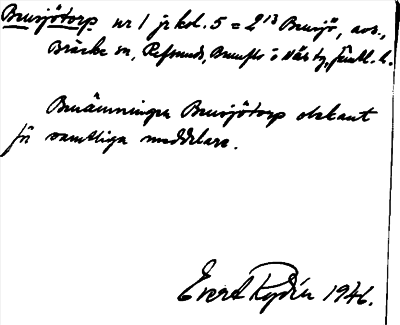 Bensjötorp nr 1 jr kol. 5 = 2¹³ Bensjö, avs.,
Bräcke sn, Refsunds, Brunflo o Näs tg, Jämtl. l.
Benämningen Bensjötorp obekant
för samtliga meddelare.
Evert Rydén 1946.